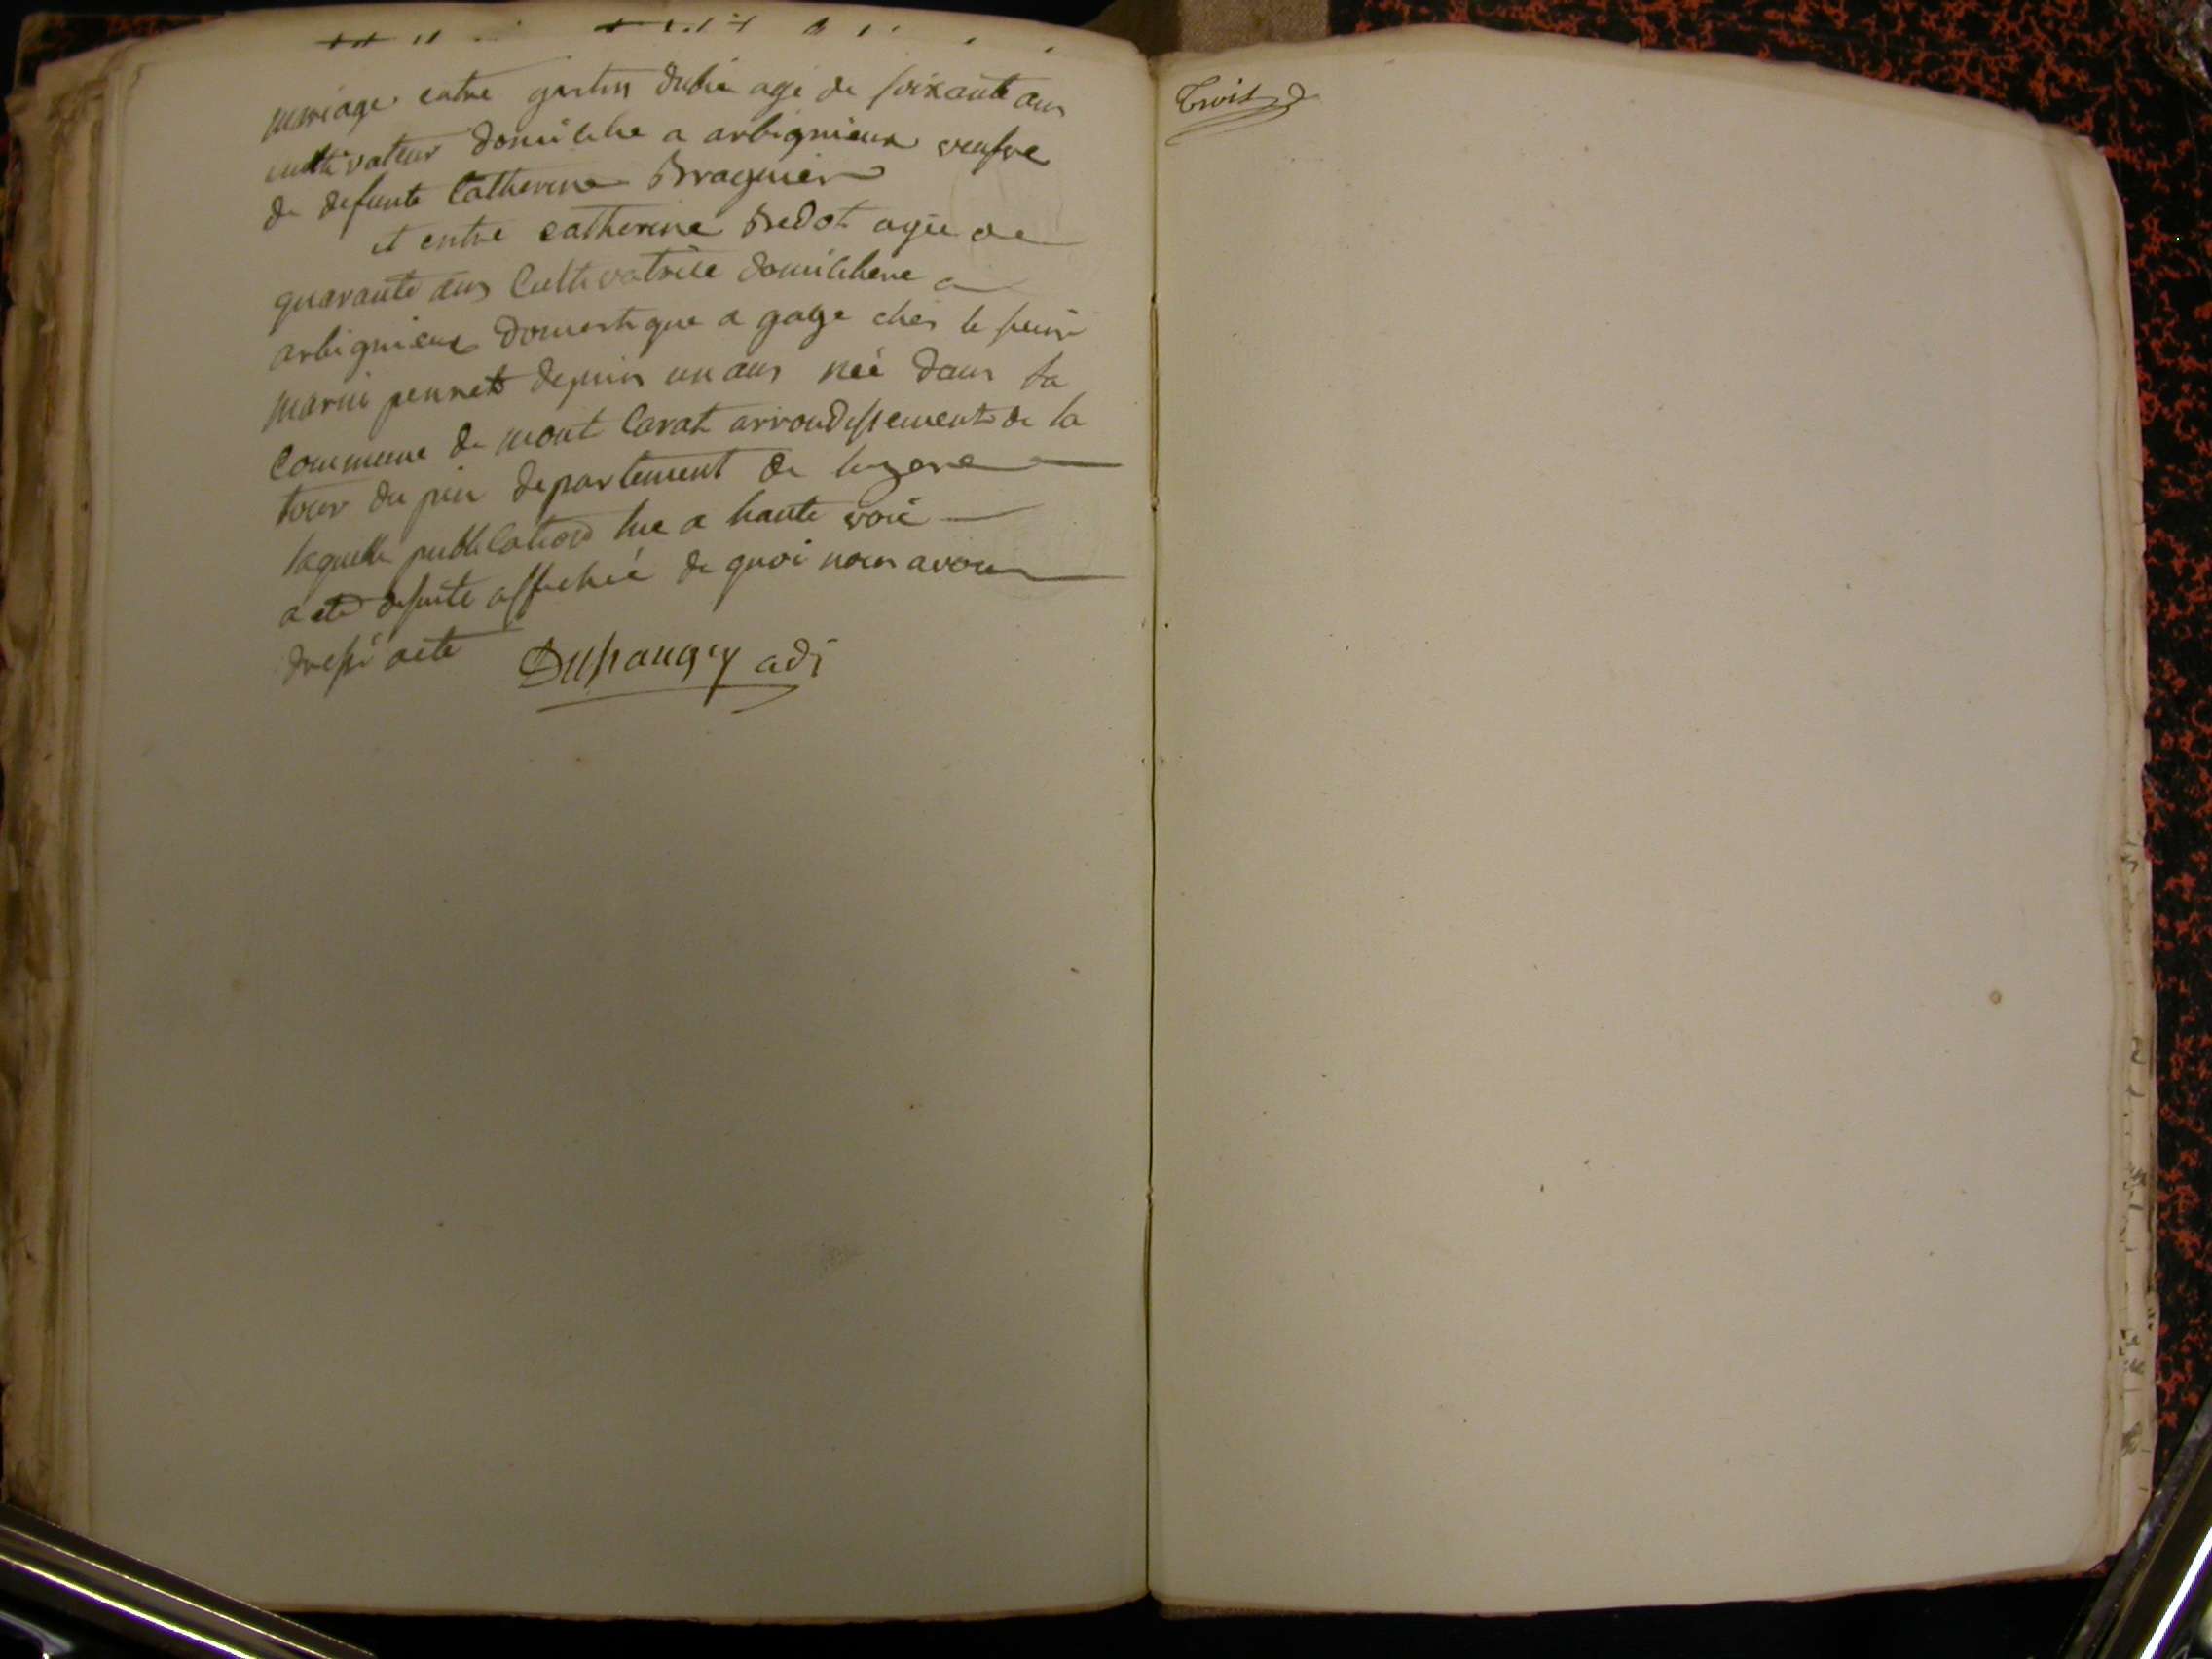 mariage entre gartin dubié agé de soixante ans
cultivateur domicilie a arbignieux veufve
de defunte Catherine Braguier
et entre catherine Bedot agée de
quarante ans Cultivatrice domiciliene a
arbignieux domestique a gage ches le sieur
marin pennet depuis un ans née dans la
Commune de mont Carat arrondissement de la
tour du pin departement de lizere
laquelle publication lue a haute voie
a ete desuite affichée de quoi nous avons
dressé acte
Dupaugey adj
Trois